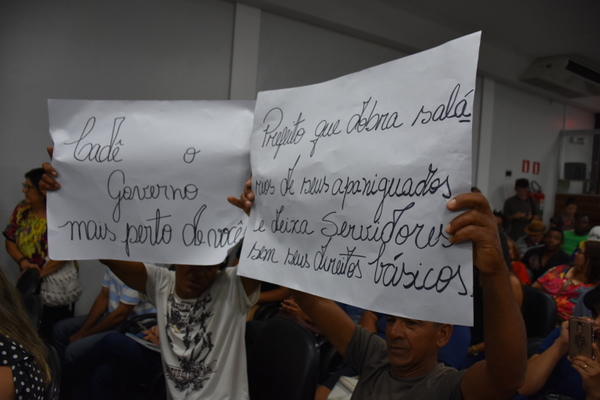 Cadê o
Governo
mais perto de você
Prefeito que dobra salá
rios de seus apaniguados
e deixa Servidores
sem seus direitos básicos.